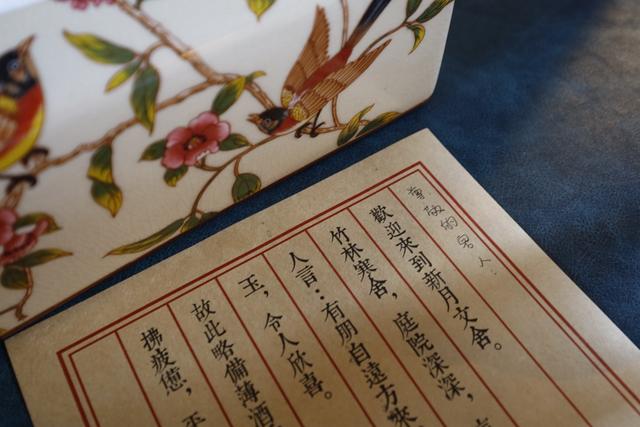 尊敬的客人:
歡迎來到新月文舍。
竹林寒舍，庭院深深，
人言：有朋自遠方來
玉，令人欣喜。
故此略備薄酒
拂疲憊，